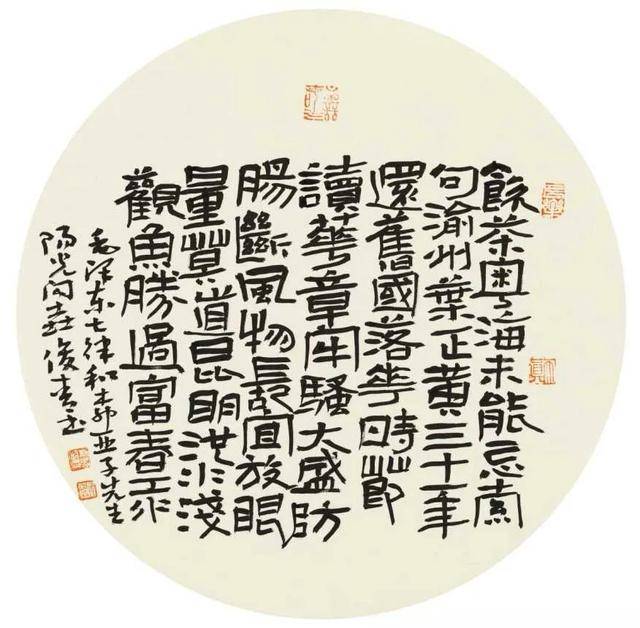 飲茶粵海未能忘索
句渝州葉正黃三十一年
還舊國落花時節
讀華章牢騷太盛防
腸斷風物長宜放眼
量莫道昆明池水淺
觀魚勝過富春江
毛澤東七律和柳亞子先生
陽光問俊